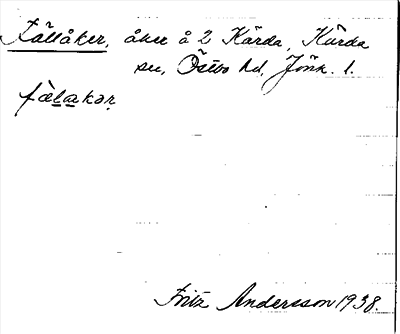 Fällåker, åker å 2 Kärda, Kärda
sn, Östbo hd, Jönk. l.
fælakər
Fritz Andersson 1938.